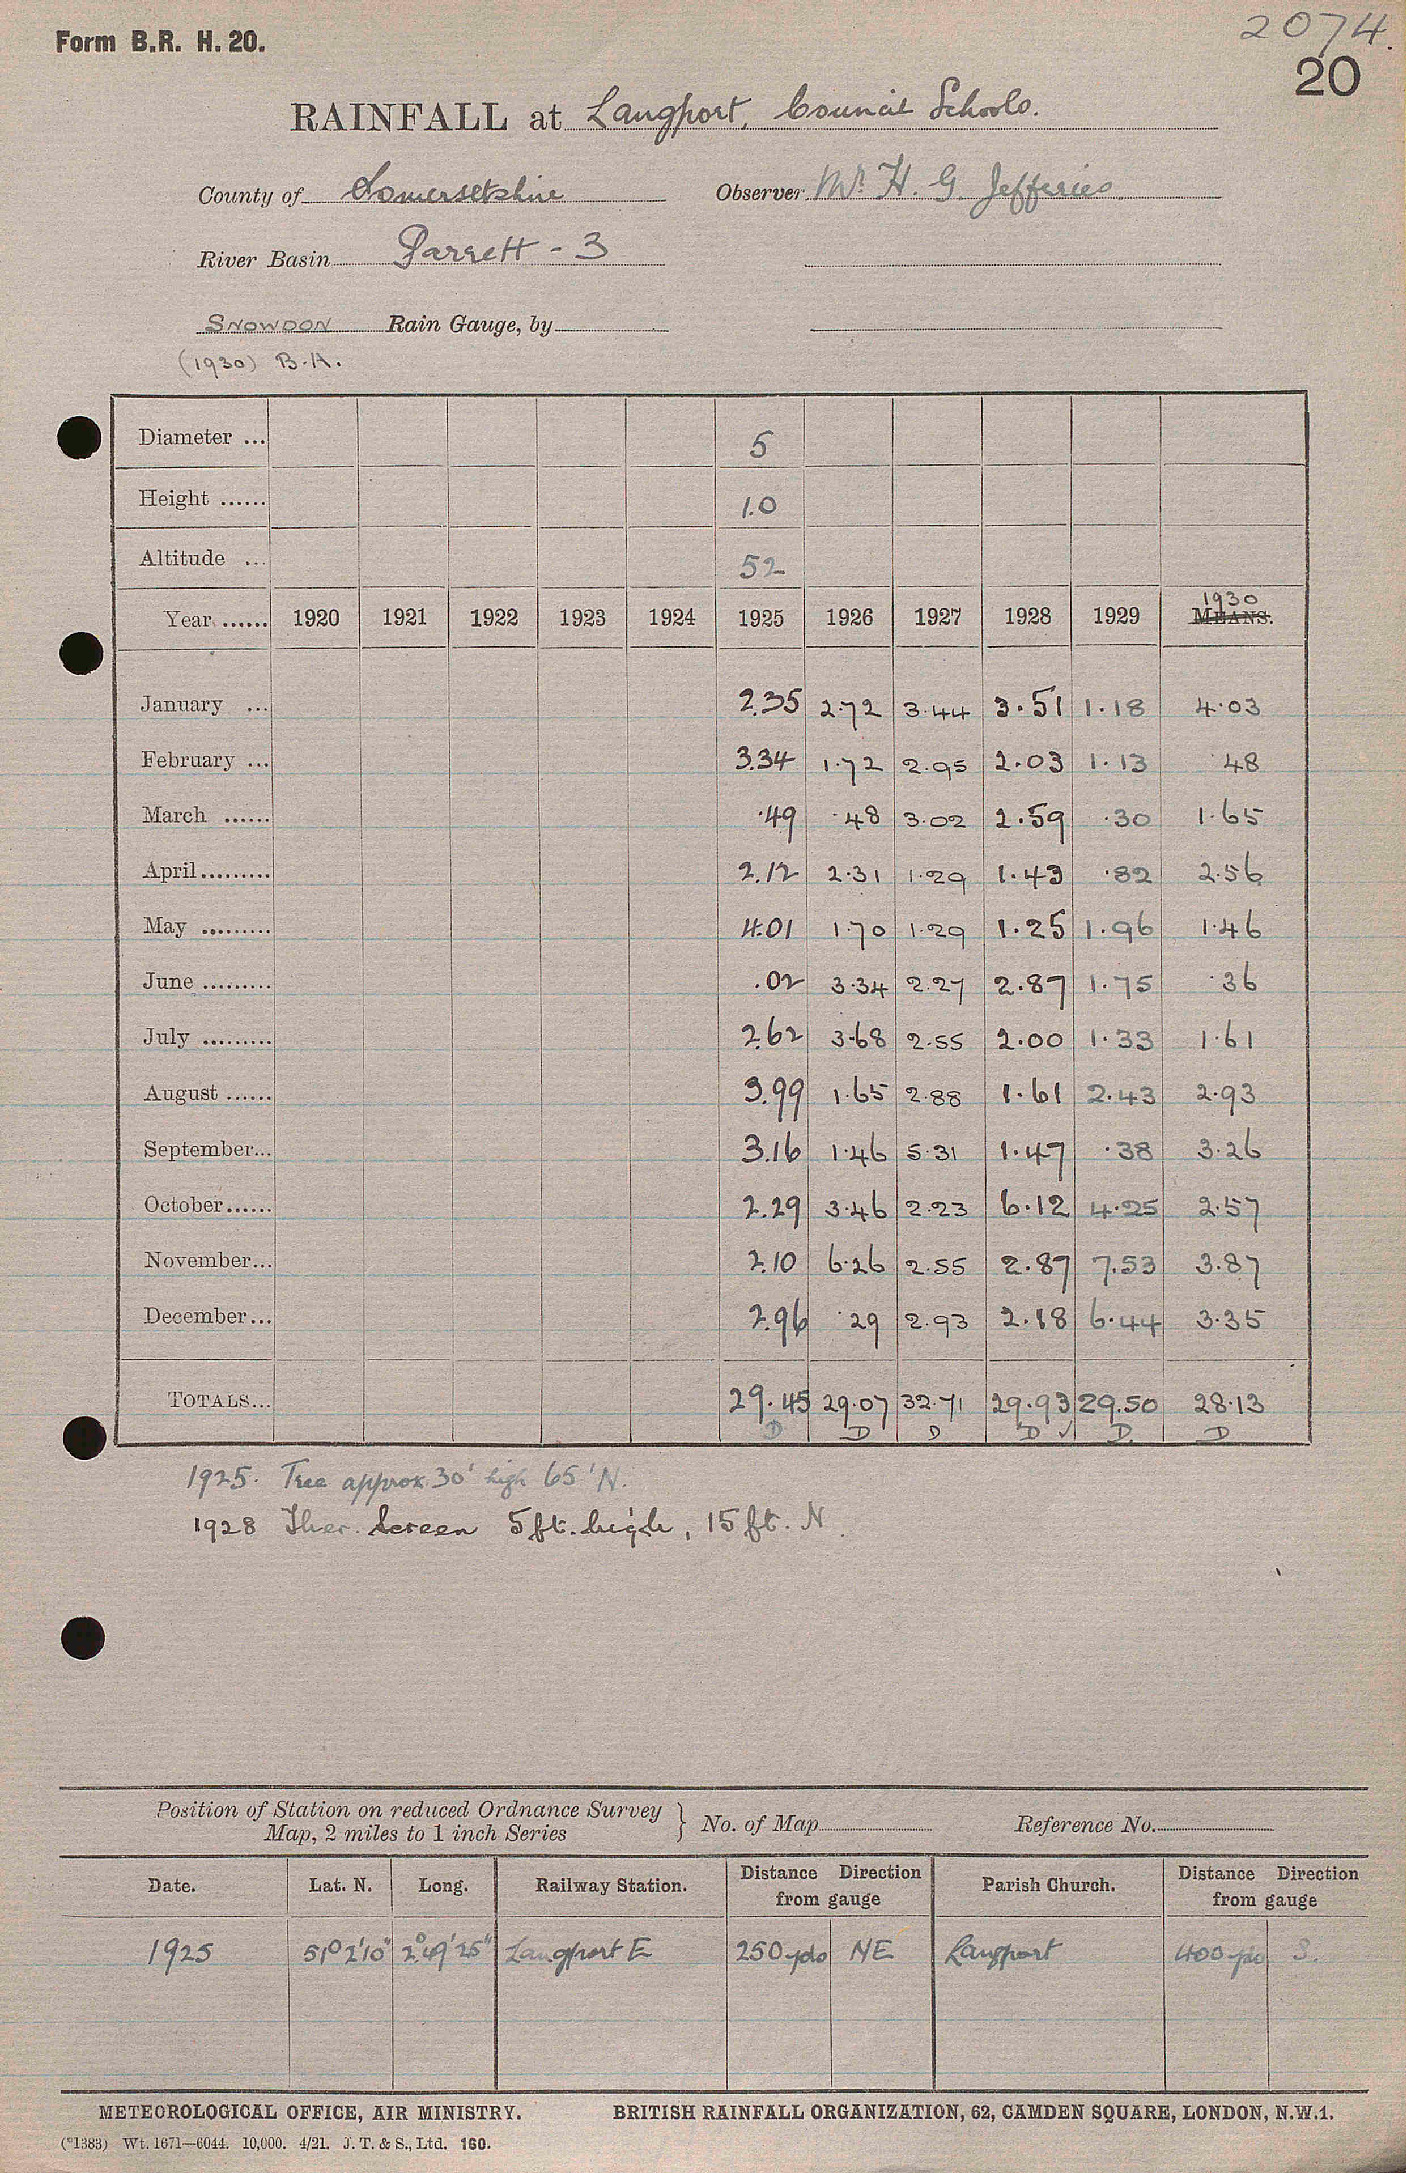 Form B.R. H. 20.
2074.
20
RAINFALL at Langport, Council Schools.
County of Somersetshire Observer Mr. H. G. Jefferies.
River Basin Parrett - 3
SNOWDON Rain Gauge, by
(1930) B.A.
Diameter ... 5
Height ...... 1.0
Altitude ... 52
1930
Year ...... 1920 1921 1922 1923 1924 1925 1926 1927 1928 1929 MEANS.
January ... 2.35 2.72 3.44 3.51 1.18 4.03
February ... 3.34 1.72 2.95 2.03 1.13 .48
March ...... .49 .48 3.02 2.59 .30 1.65
April ......... 2.12 2.31 1.29 1.43 .82 2.56
May ......... 4.01 1.70 1.29 1.25 1.96 1.46
June ......... .02 3.34 2.27 2.87 1.75 .36
July ......... 2.62 3.68 2.55 2.00 1.33 1.61
August ...... 3.99 1.65 2.88 1.61 2.43 2.93
September... 3.16 1.46 5.31 1.47 .38 3.26
October...... 2.29 3.46 2.23 6.12 4.25 2.57
November... 2.10 6.26 2.55 2.87 7.53 3.87
December... 2.96 .29 2.93 2.18 6.44 3.35
TOTALS... 29.45 29.07 32.71 29.93 29.50 28.13
D D D D ✓ D. D
1925. Tree approx 30' high 65' N.
1928 Ther. Screen 5ft. high, 15ft. N.
Position of Station on reduced Ordnance Survey
Map, 2 miles to 1 inch Series } No. of Map Reference No.
Date. Lat. N. Long. Railway Station. Distance Direction from gauge Parish Church. Distance Direction from gauge
1925 51° 2' 10" 2° 49' 25" Langport E 250 yds NE Langport 400 yds S.
METEOROLOGICAL OFFICE, AIR MINISTRY. BRITISH RAINFALL ORGANIZATION, 62, CAMDEN SQUARE, LONDON, N.W.1.
(*1383) Wt. 1671—6044. 10,000. 4/21. J. T. & S., Ltd. 160.